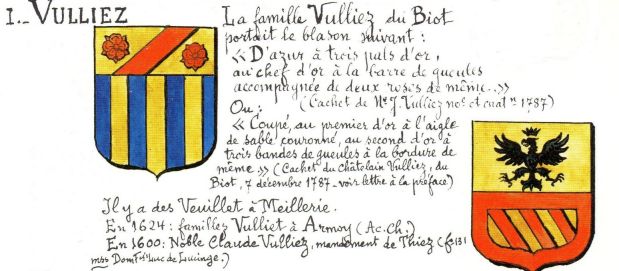 I._ VULLIEZ
La famille Vulliez du Biot
portait le blason suivant :
« D'azur à trois pals d'or,
au chef d'or à la barre de gueules
accompagnée de deux roses de même..»
(Cachet de Me J. Vulliez noe et chat n 1787)
Ou :
« Coupé, au premier d'or à l'aigle
de sable couronné, au second d'or à
trois bandes de gueules à la bordure de
même » (Cachet du châtelain Vulliez, du
Biot, 7 décembre 1787_ voir lettre à la préface)
Il y a des Veuillet à Meillerie.
En 1624 : familles Vulliet à Armoy (Ac.Ch.)
En 1600: Noble Claude Vulliez, mandement de Thiez (fo 131
mss Domt St Luc de Lucinge.)